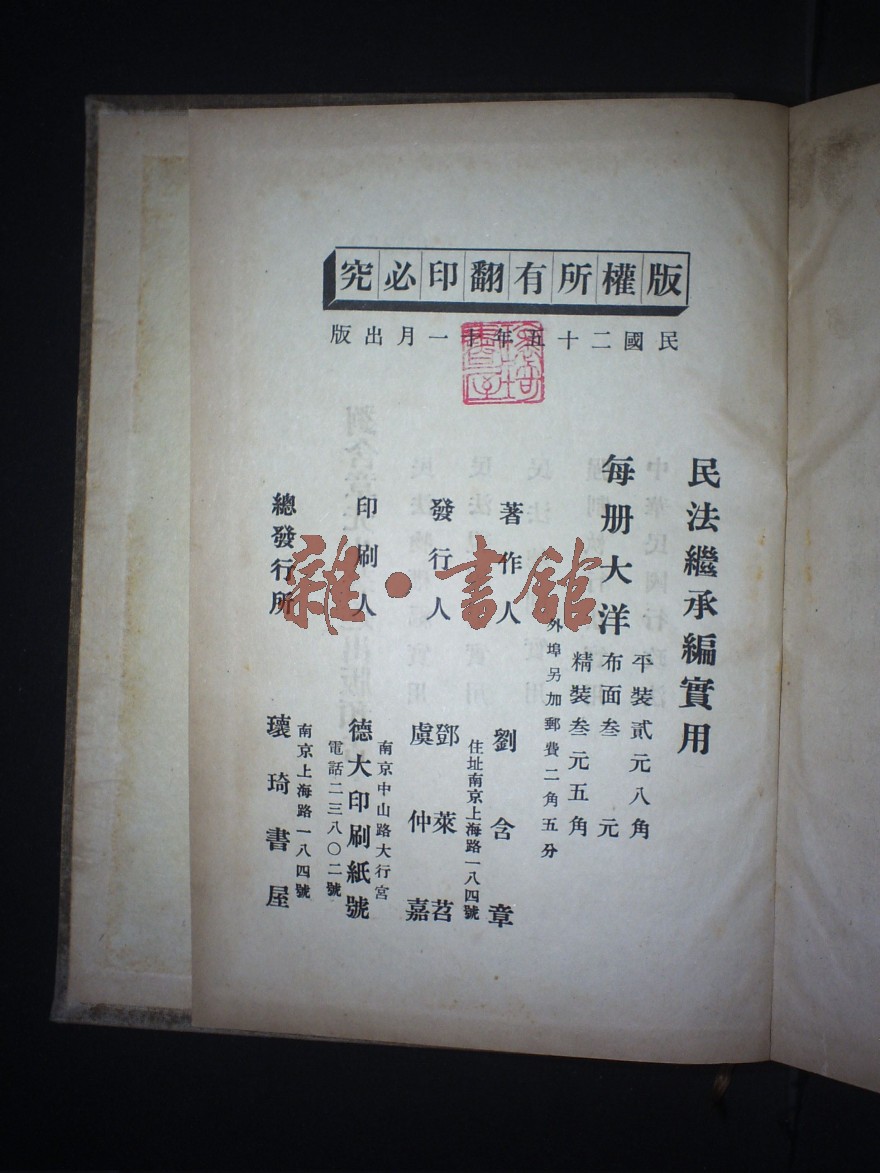 版權所有翻印必究
民國二十五年十一月出版
民法繼承編實用
每册大洋
平裝貳元八角
布面叁元
精裝叁元五角
外埠另加郵費二角五分
著作人 劉含章
住址南京上海路一八四號
發行人 鄧萊茗
虞仲嘉
印刷人
南京中山路大行宮
德大印刷紙號
電話二三八〇二號
總發行所
南京上海路一八四號
瓌琦書屋
雜·書館